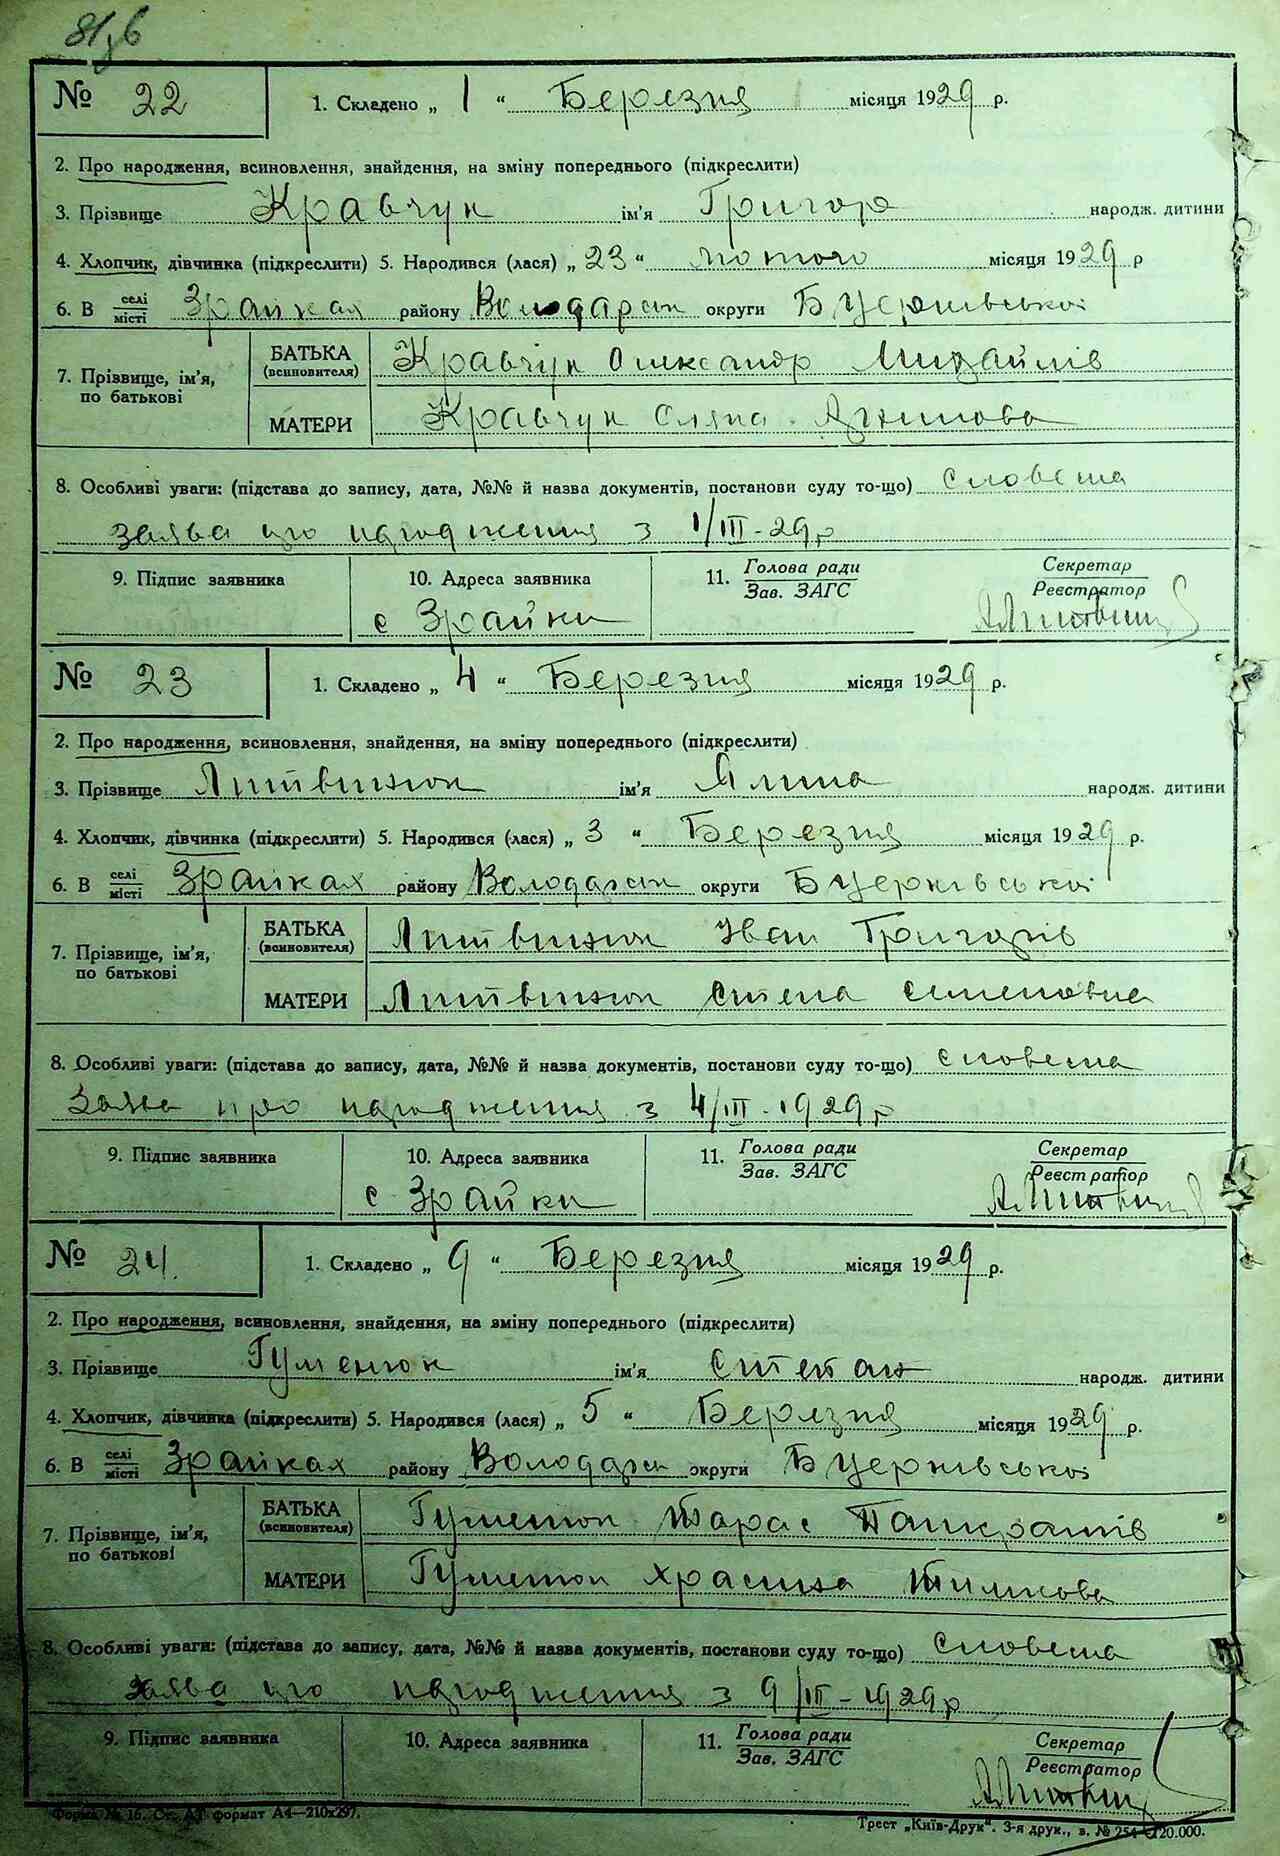 81зб
№ 22 1. Складено „ 1 “ Березня місяця 1929 р.
2. Про народження, всиновлення, знайдення, на зміну попереднього (підкреслити)
3. Прізвище Кравчук ім'я Григор народж. дитини
4. Хлопчик, дівчинка (підкреслити) 5. Народився (лася) „ 23 “ лютого місяця 1929 р
6. В селі місті Зрайках району Володарськ округи БЦерківської
7. Прізвище, ім'я, по батькові
БАТЬКА (всиновителя) Кравчук Олександр Михайлів
МАТЕРИ Кравчук Оляна
8. Особливі уваги: (підстава до запису, дата, №№ й назва документів, постанови суду то-що) Словесна
заява про народження з 1/III-29р
9. Підпис заявника 10. Адреса заявника 11. Голова ради Зав. ЗАГС Секретар Реєстратор
с Зрайки АЛитвин
№ 23 1. Складено „ 4 “ Березня місяця 1929 р.
2. Про народження, всиновлення, знайдення, на зміну попереднього (підкреслити)
3. Прізвище Литвинюк ім'я Ялина народж. дитини
4. Хлопчик, дівчинка (підкреслити) 5. Народився (лася) „ 3 “ Березня місяця 1929 р.
6. В селі місті Зрайках району Володарськ округи БЦерківської
7. Прізвище, ім'я, по батькові
БАТЬКА (всиновителя) Литвинюк Іван Григорів
МАТЕРИ Литвинюк Степа Семеновна
8. Особливі уваги: (підстава до запису, дата, №№ й назва документів, постанови суду то-що) Словесна
Заява про народження з 4/III-1929р
9. Підпис заявника 10. Адреса заявника 11. Голова ради Зав. ЗАГС Секретар Реєстратор
с Зрайки АЛитвин
№ 24. 1. Складено „ 9 “ Березня місяця 1929 р.
2. Про народження, всиновлення, знайдення, на зміну попереднього (підкреслити)
3. Прізвище Гуменюк ім'я Степан народж. дитини
4. Хлопчик, дівчинка (підкреслити) 5. Народився (лася) „ 5 “ Березня місяця 1929 р.
6. В селі місті Зрайках району Володарськ округи БЦерківської
7. Прізвище, ім'я, по батькові
БАТЬКА (всиновителя) Гуменюк Тарас Панкратів
МАТЕРИ Гуменюк Храсина Тимкова
8. Особливі уваги: (підстава до запису, дата, №№ й назва документів, постанови суду то-що) Словесна
заява про народження з 9/III-1929р
9. Підпис заявника 10. Адреса заявника 11. Голова ради Зав. ЗАГС Секретар Реєстратор
АЛитвин
Форма № 16. Ст. АТ формат А4—210х297.
Трест „Київ-Друк“. 3-я друк., в. № 254—120.000.